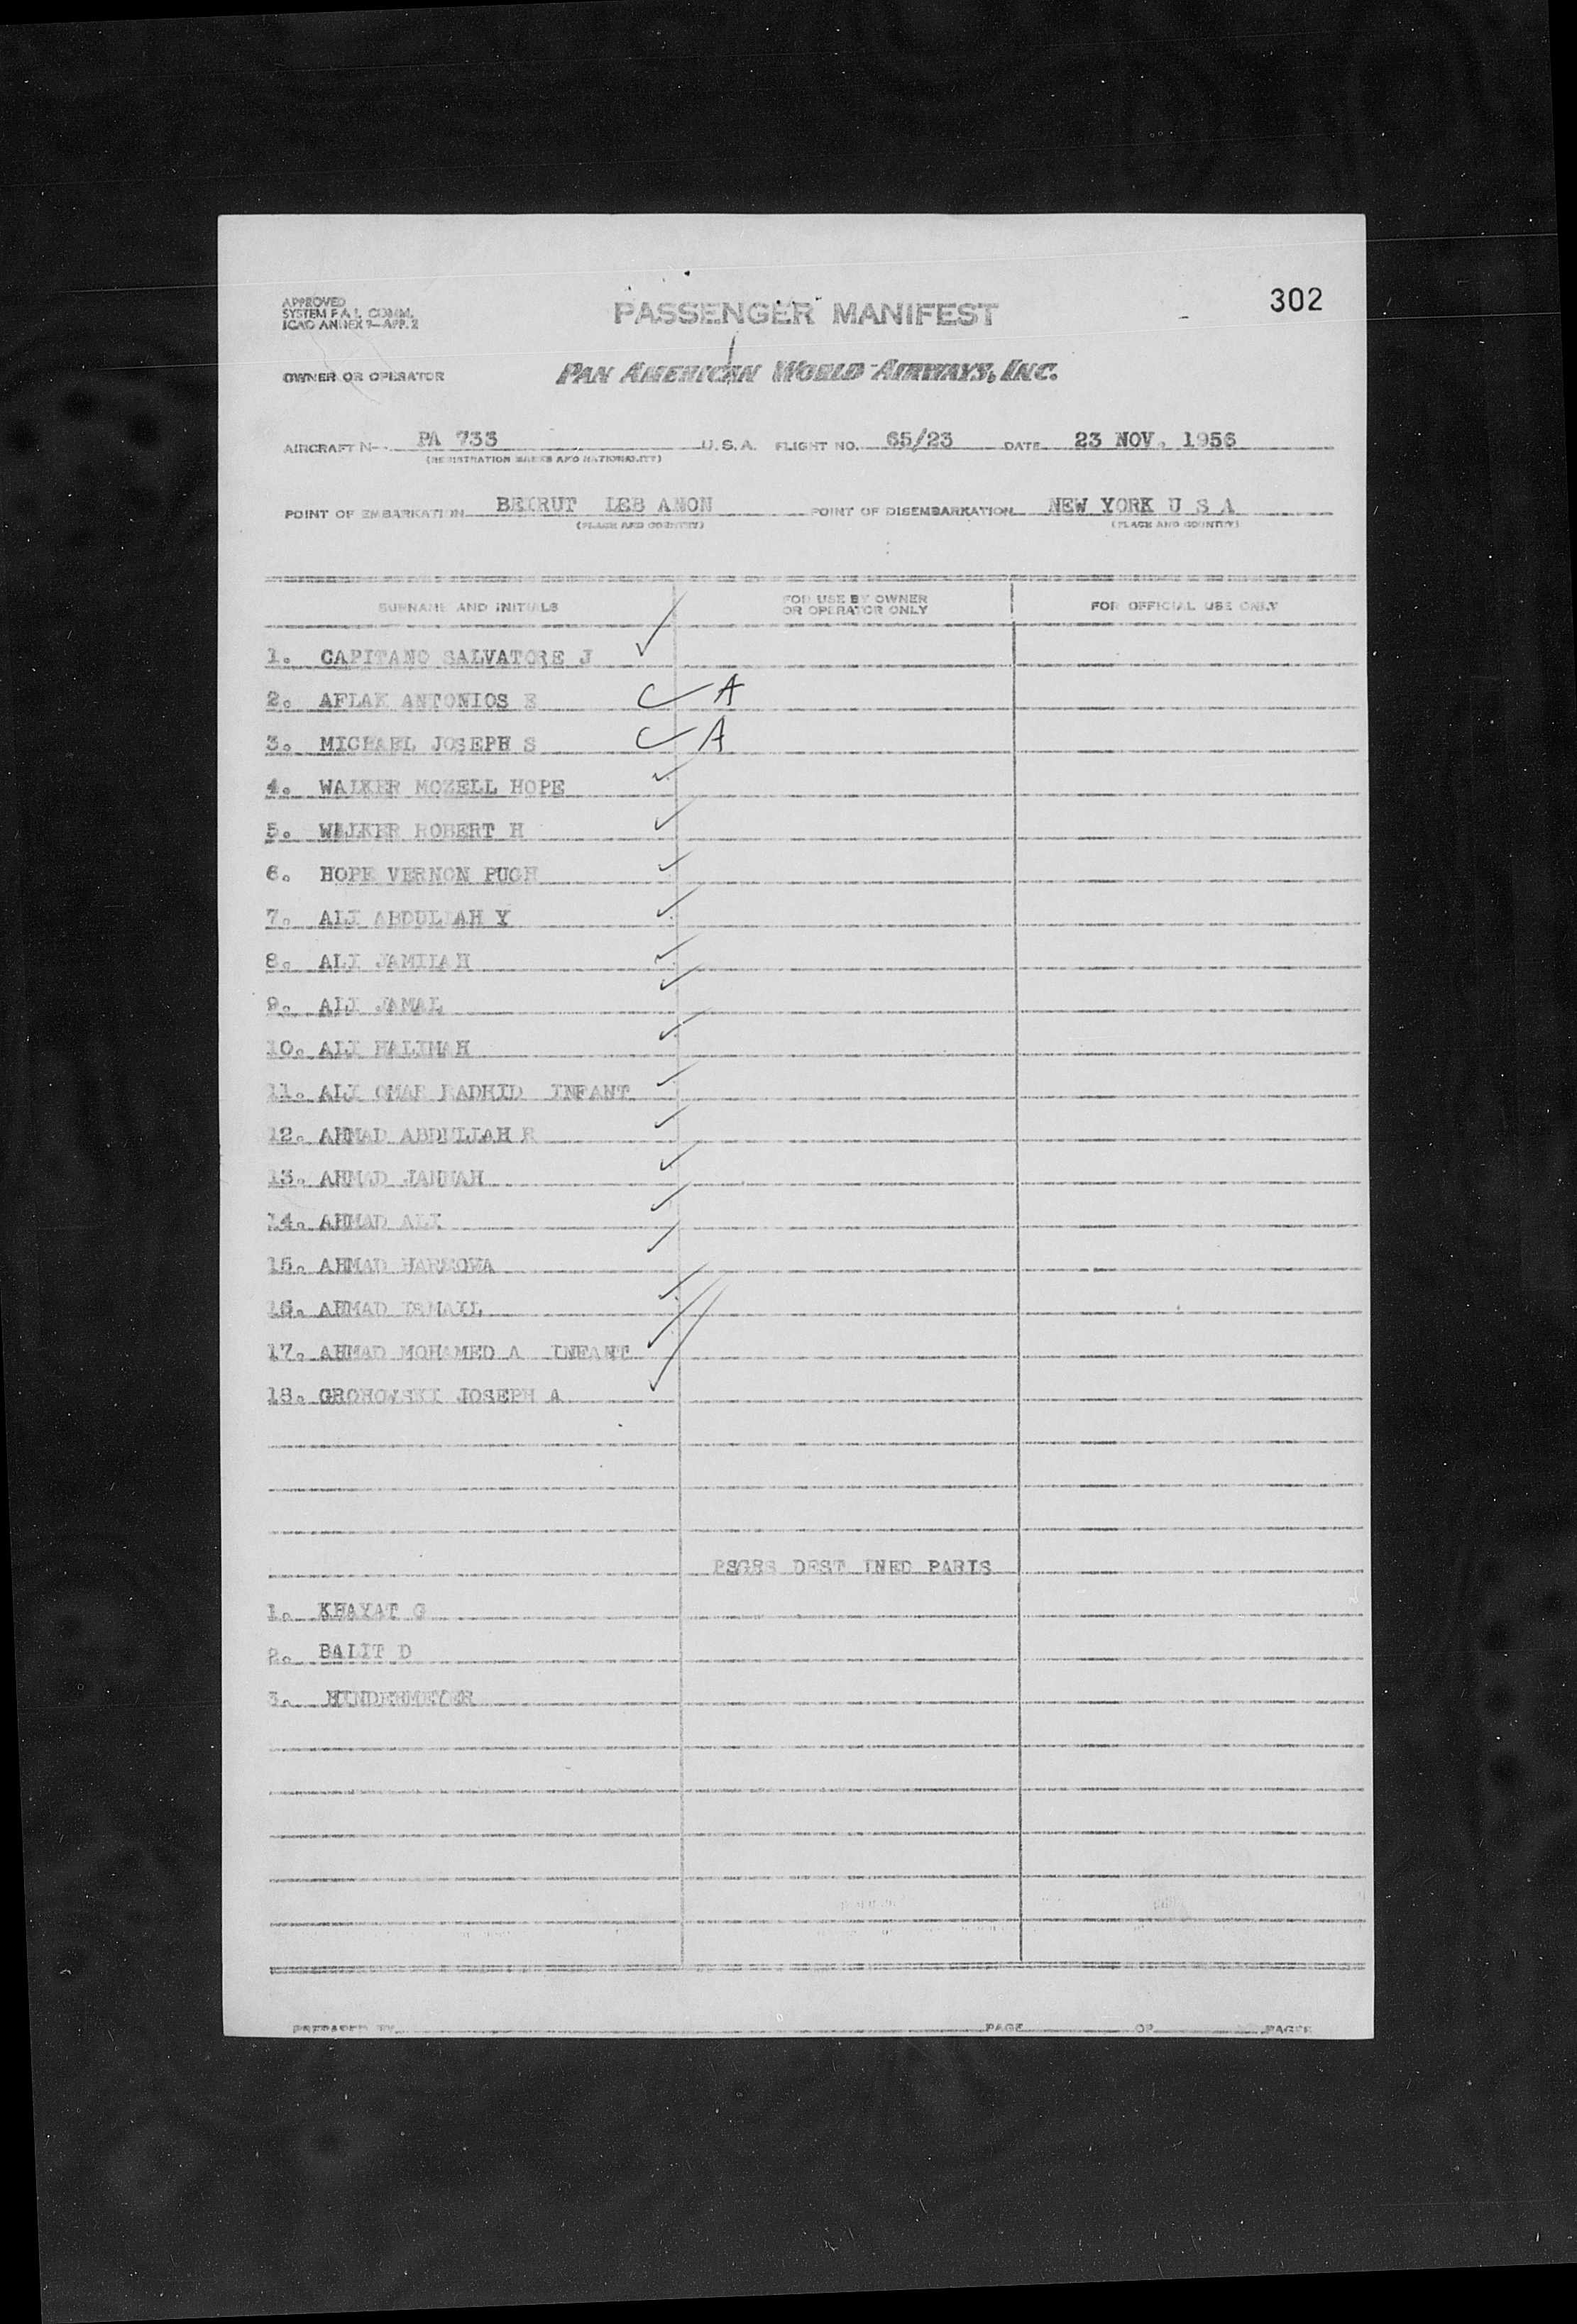 302
APPROVED
SYSTEM F A L COMM.
ICAO ANNEX 9—APP. 2
PASSENGER MANIFEST
OWNER OR OPERATOR PAN AMERICAN WORLD AIRWAYS, INC.
AIRCRAFT N PA 733 U. S. A. FLIGHT NO. 65/23 DATE 23 NOV. 1956
(REGISTRATION MARKS AND NATIONALITY)
POINT OF EMBARKATION BEIRUT LEB ANON POINT OF DISEMBARKATION NEW YORK U S A
(PLACE AND COUNTRY) (PLACE AND COUNTRY)
SURNAME AND INITIALS FOR USE BY OWNER OR OPERATOR ONLY FOR OFFICIAL USE ONLY
1. CAPITANO SALVATORE J
2. AFLAK ANTONIOS E A
3. MICHAEL JOSEPH S A
4. WALKER MOZELL HOPE
5. WALKER ROBERT H
6. HOPE VERNON PUGH
7. ALI ABDULLAH Y
8. ALI JAMILAH
9. ALI JAMAL
10. ALI HALIMAH
11. ALI OMAR RADHID INFANT
12. AHMAD ABDULLAH
13. AHMAD JANNAH
14. AHMAD ALI
15. AHMAD
16. AHMAD ISMAIL
17. AHMAD MOHAMED A INFANT
18. GROHOWSKI JOSEPH A
PSGRS DEST INED PARIS
1. KHAYAT G
2. BALIT D
3. HINDERMEYER
PREPARED BY PAGE OF PAGES